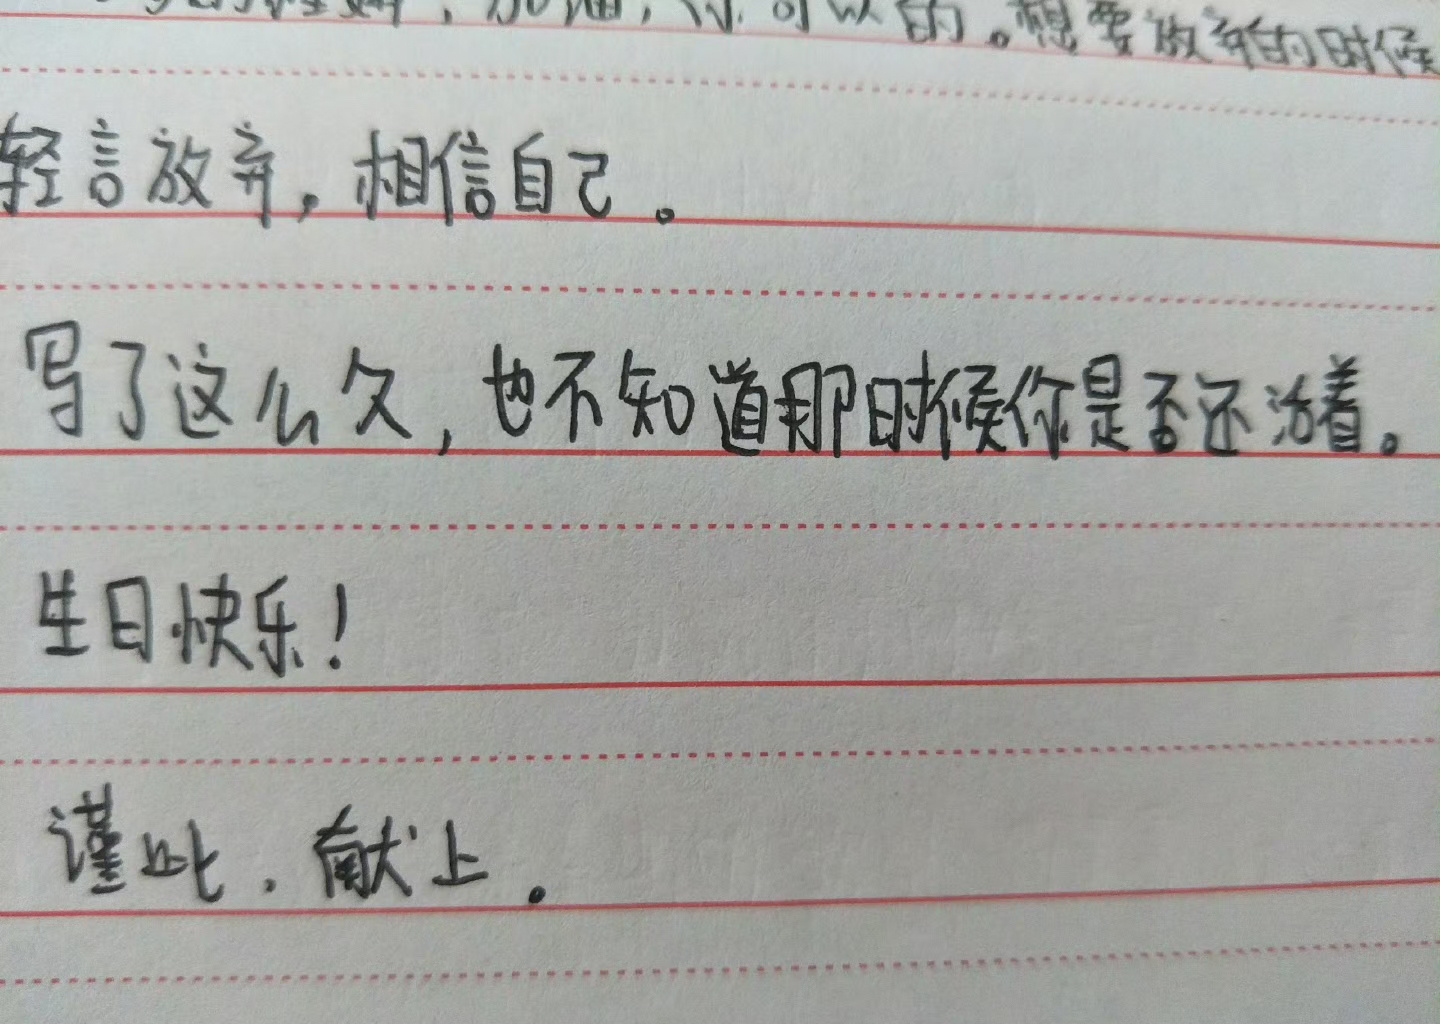 加油，你可以的。想要放弃的时候
轻言放弃，相信自己。
写了这么久，也不知道那时候你是否还活着。
生日快乐！
谨此，献上。